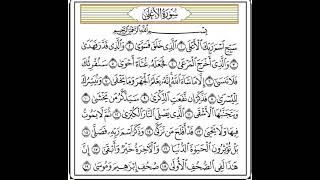 سُورَةُ الأَعْلَى
بِسْمِ ٱللَّهِ ٱلرَّحْمَٰنِ ٱلرَّحِيمِ
سَبِّحِ ٱسْمَ رَبِّكَ ٱلْأَعْلَى ١ ٱلَّذِى خَلَقَ فَسَوَّىٰ ٢ وَٱلَّذِى قَدَّرَ فَهَدَىٰ
٣ وَٱلَّذِىٓ أَخْرَجَ ٱلْمَرْعَىٰ ٤ فَجَعَلَهُۥ غُثَآءً أَحْوَىٰ ٥ سَنُقْرِئُكَ
فَلَا تَنسَىٰٓ ٦ إِلَّا مَا شَآءَ ٱللَّهُ إِنَّهُۥ يَعْلَمُ ٱلْجَهْرَ وَمَا يَخْفَىٰ ٧ وَنُيَسِّرُكَ
لِلْيُسْرَىٰ ٨ فَذَكِّرْ إِن نَّفَعَتِ ٱلذِّكْرَىٰ ٩ سَيَذَّكَّرُ مَن يَخْشَىٰ
١٠ وَيَتَجَنَّبُهَا ٱلْأَشْقَى ١١ ٱلَّذِى يَصْلَى ٱلنَّارَ ٱلْكُبْرَىٰ ١٢ ثُمَّ لَا يَمُوتُ
فِيهَا وَلَا يَحْيَىٰ ١٣ قَدْ أَفْلَحَ مَن تَزَكَّىٰ ١٤ وَذَكَرَ ٱسْمَ رَبِّهِۦ فَصَلَّىٰ
١٥ بَلْ تُؤْثِرُونَ ٱلْحَيَوٰةَ ٱلدُّنْيَا ١٦ وَٱلْءَاخِرَةُ خَيْرٌ وَأَبْقَىٰٓ ١٧
إِنَّ هَٰذَا لَفِى ٱلصُّحُفِ ٱلْأُولَىٰ ١٨ صُحُفِ إِبْرَٰهِيمَ وَمُوسَىٰ ١٩